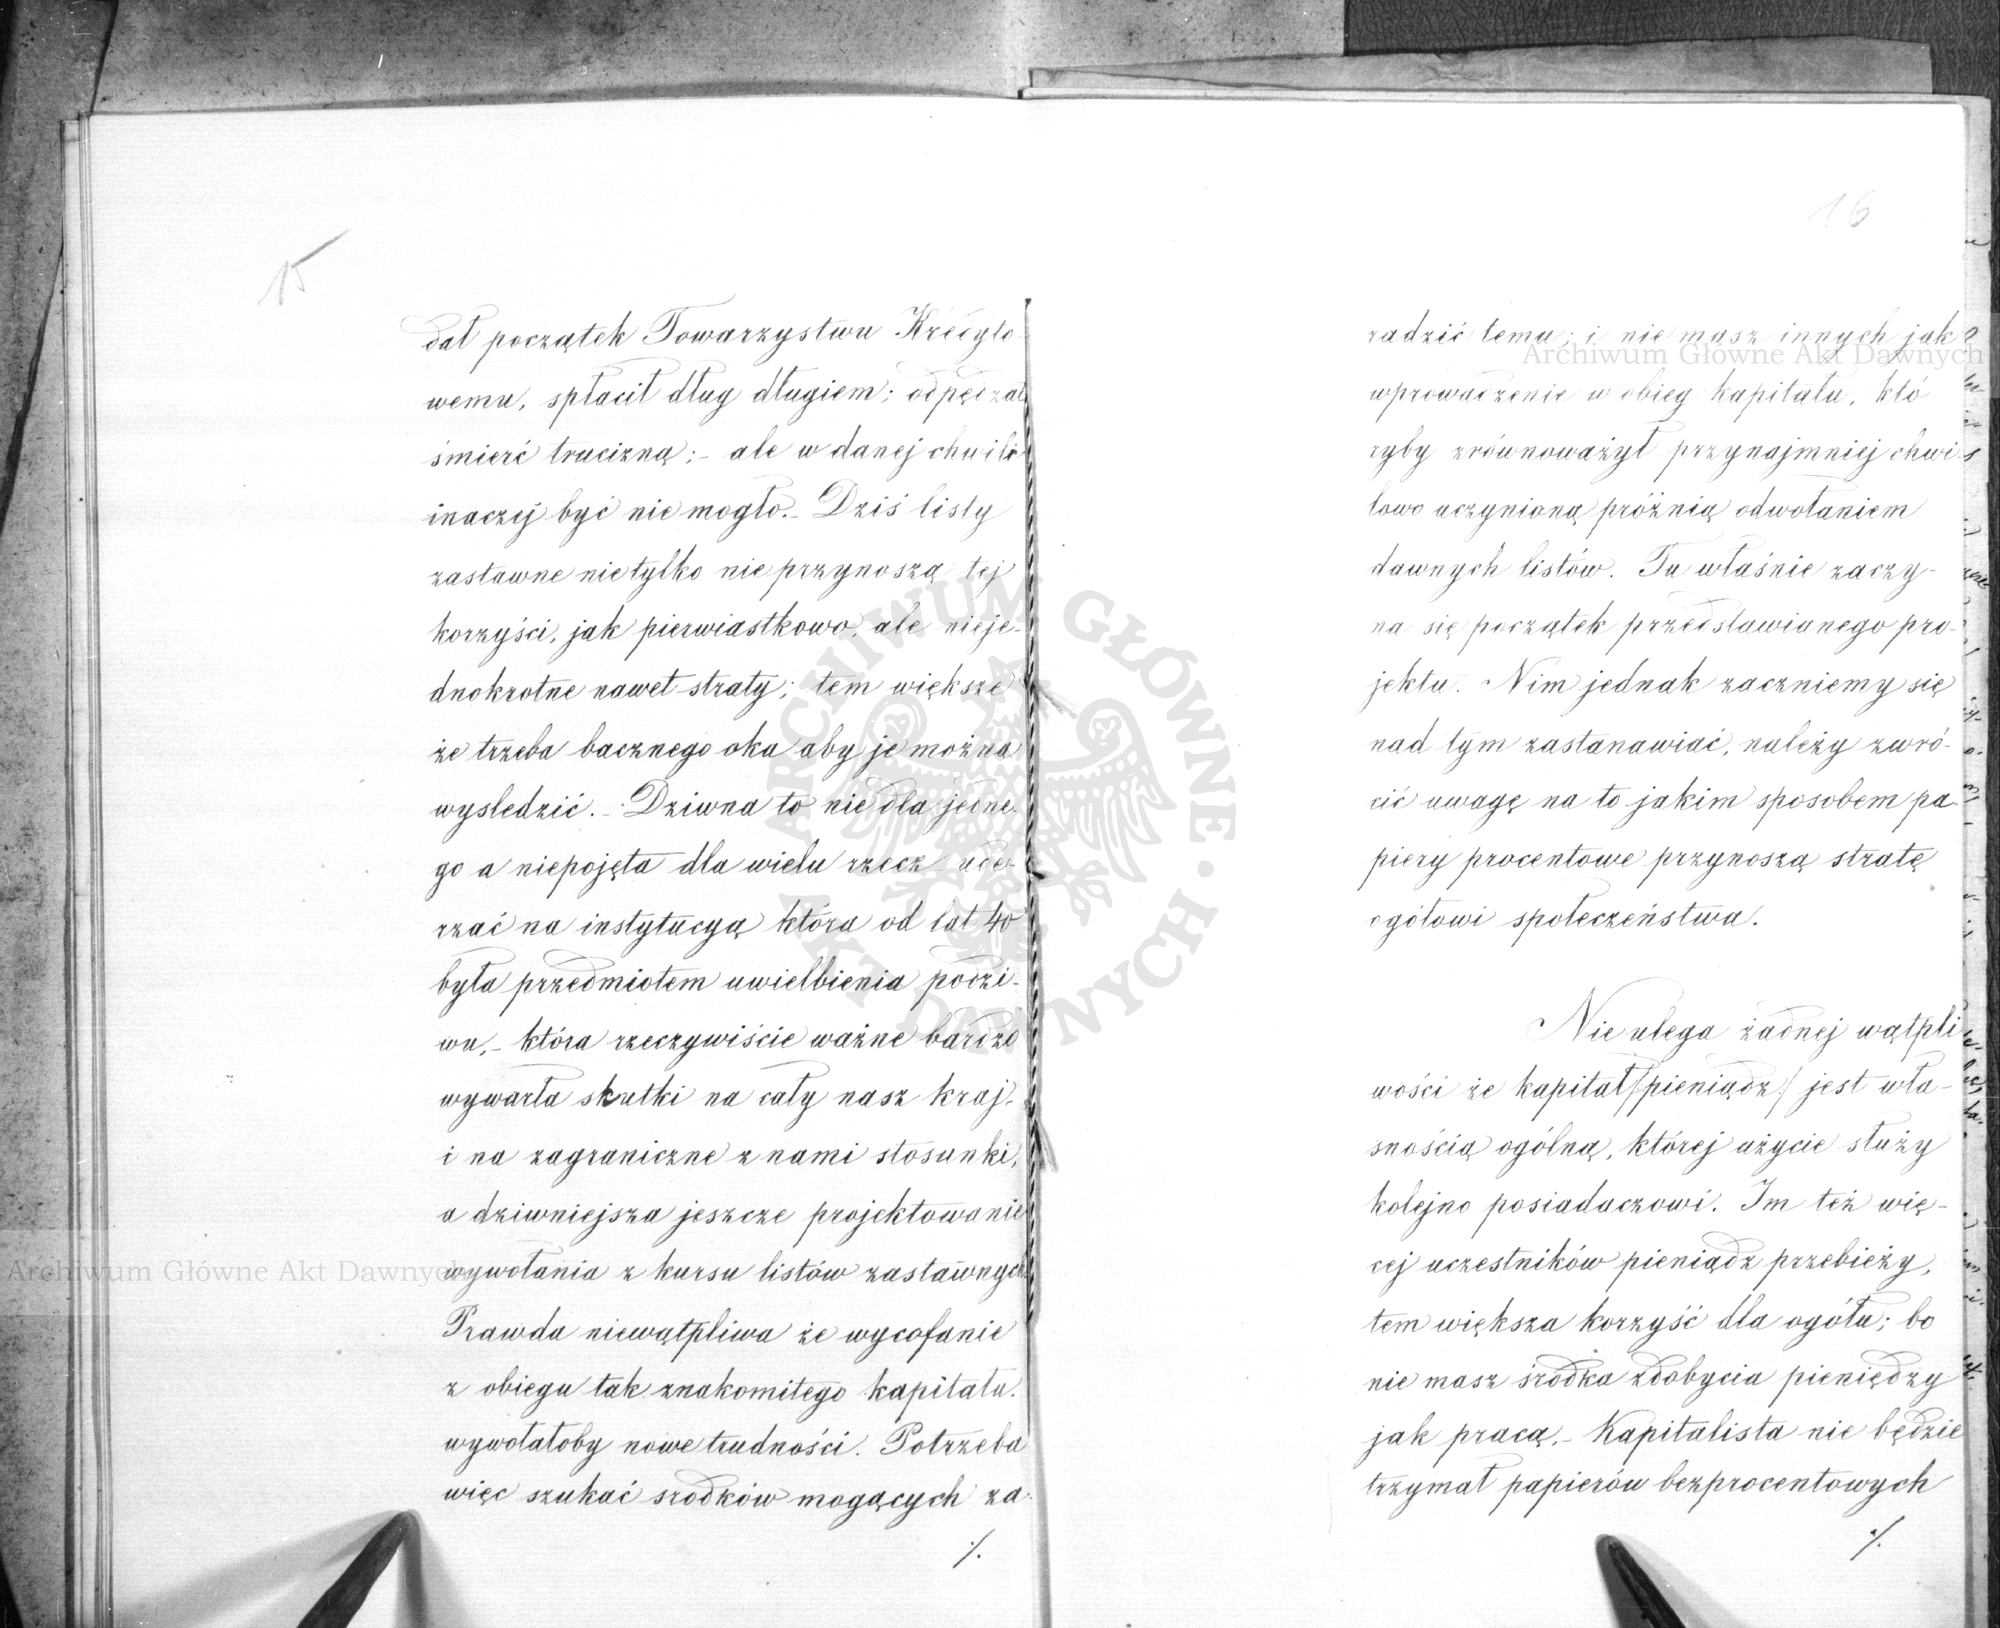 15
dał początek Towarzystwu Kredyto
wemu, spłacił dług długiem; odpędzał
śmierć trucizną; - ale w danej chwili
inaczej być nie mogło. - Dziś listy
zastawne nietylko nie przynoszą tej
korzyści, jak pierwiastkowo, ale nieje-
dnokrotne nawet straty; tem większe
że trzeba bacznego oka aby je można
wysledzić. - Dziwna to nie dla jedne-
go a niepojęta dla wielu rzecz ude-
rzać na instytucyą która od lat 40
była przedmiotem uwielbienia podzi-
wu, - która rzeczywiście ważne bardzo
wywarła skutki na cały nasz kraj.
i na zagraniczne z nami stosunki,
a dziwniejsza jeszcze projektowanie
wywołania z kursu listów zastawnych
Prawda niewątpliwa że wycofanie
z obiegu tak znakomitego kapitału.
wywołałoby nowe trudności. Potrzeba
więc szukać środków mogących za-
./.
16
radzić temu; i nie masz innych jak
wprowadzenie w obieg kapitału, któ
ryby zrównoważył przynajmniej chwi
lowo uczynioną próżnią odwołaniem
dawnych listów. Tu właśnie zaczy-
na się początek przedstawianego pro-
jektu. Nim jednak zaczniemy się
nad tym zastanawiać, należy zwró-
cić uwagę na to jakim sposobem pa-
piery procentowe przynoszą stratę
ogółowi społeczeństwa.
Nie ulega żadnej wątpli
wości że kapitał /pieniądz/ jest wła-
snością ogólną, której użycie służy
kolejno posiadaczowi. Im też wię-
cej uczestników pieniądz przebieży,
tem większa korzyść dla ogółu; bo
nie masz środka zdobycia pieniędzy
jak pracą. - Kapitalista nie będzie
trzymał papierów bezprocentowych
./.
Archiwum Główne Akt Dawnych
Archiwum Główne Akt Dawnych
ARCHIWUM GŁÓWNE · AKT DAWNYCH ·